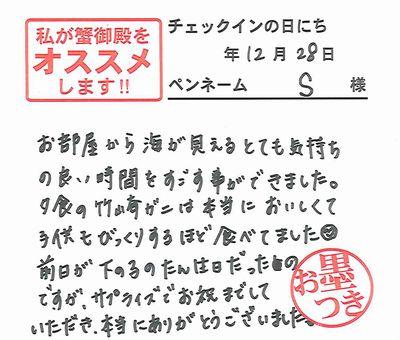 私が蟹御殿を
オススメ
します!!
チェックインの日にち
年12月28日
ペンネーム S 様
お部屋から海が見えるとても気持ち
の良い時間をすごす事ができました。
夕食の竹崎ガニは本当においしくて
子供もびっくりするほど食べてました
前日が下の子のたん生日だったもの
ですが、サプライズでお祝までして
いただき、本当にありがとうございました。
お墨つき